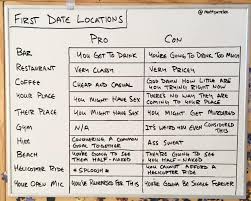 FIRST DATE LOCATIONS
@mattsurelee
PRO CON
BAR YOU GET TO DRINK YOU'RE GOING TO DRINK TOO MUCH
RESTAURANT VERY CLASSY VERY PRICEY
COFFEE CHEAP AND CASUAL GOD DAMN HOW LITTLE ARE YOU TRYING NOT TO FUCK
YOUR PLACE YOU MIGHT HAVE SEX THERE'S NO WAY THEY ARE COMING TO YOUR PLACE
THEIR PLACE YOU MIGHT HAVE SEX YOU MIGHT GET MURDERED
GYM N/A IT'S WEIRD YOU EVEN CONSIDERED THIS
HIKE CONQUERING A COMMON GOAL TOGETHER ASS SWEAT
BEACH YOU'RE GOING TO SEE THEM HALF-NAKED THEY'RE GOING TO SEE YOU HALF-NAKED
HELICOPTER RIDE *SPLOOSH* YOU CANNOT AFFORD A HELICOPTER RIDE
YOUR OPEN MIC YOU'RE FAMOUS FOR THIS YOU'RE GOING TO BE SINGLE FOREVER